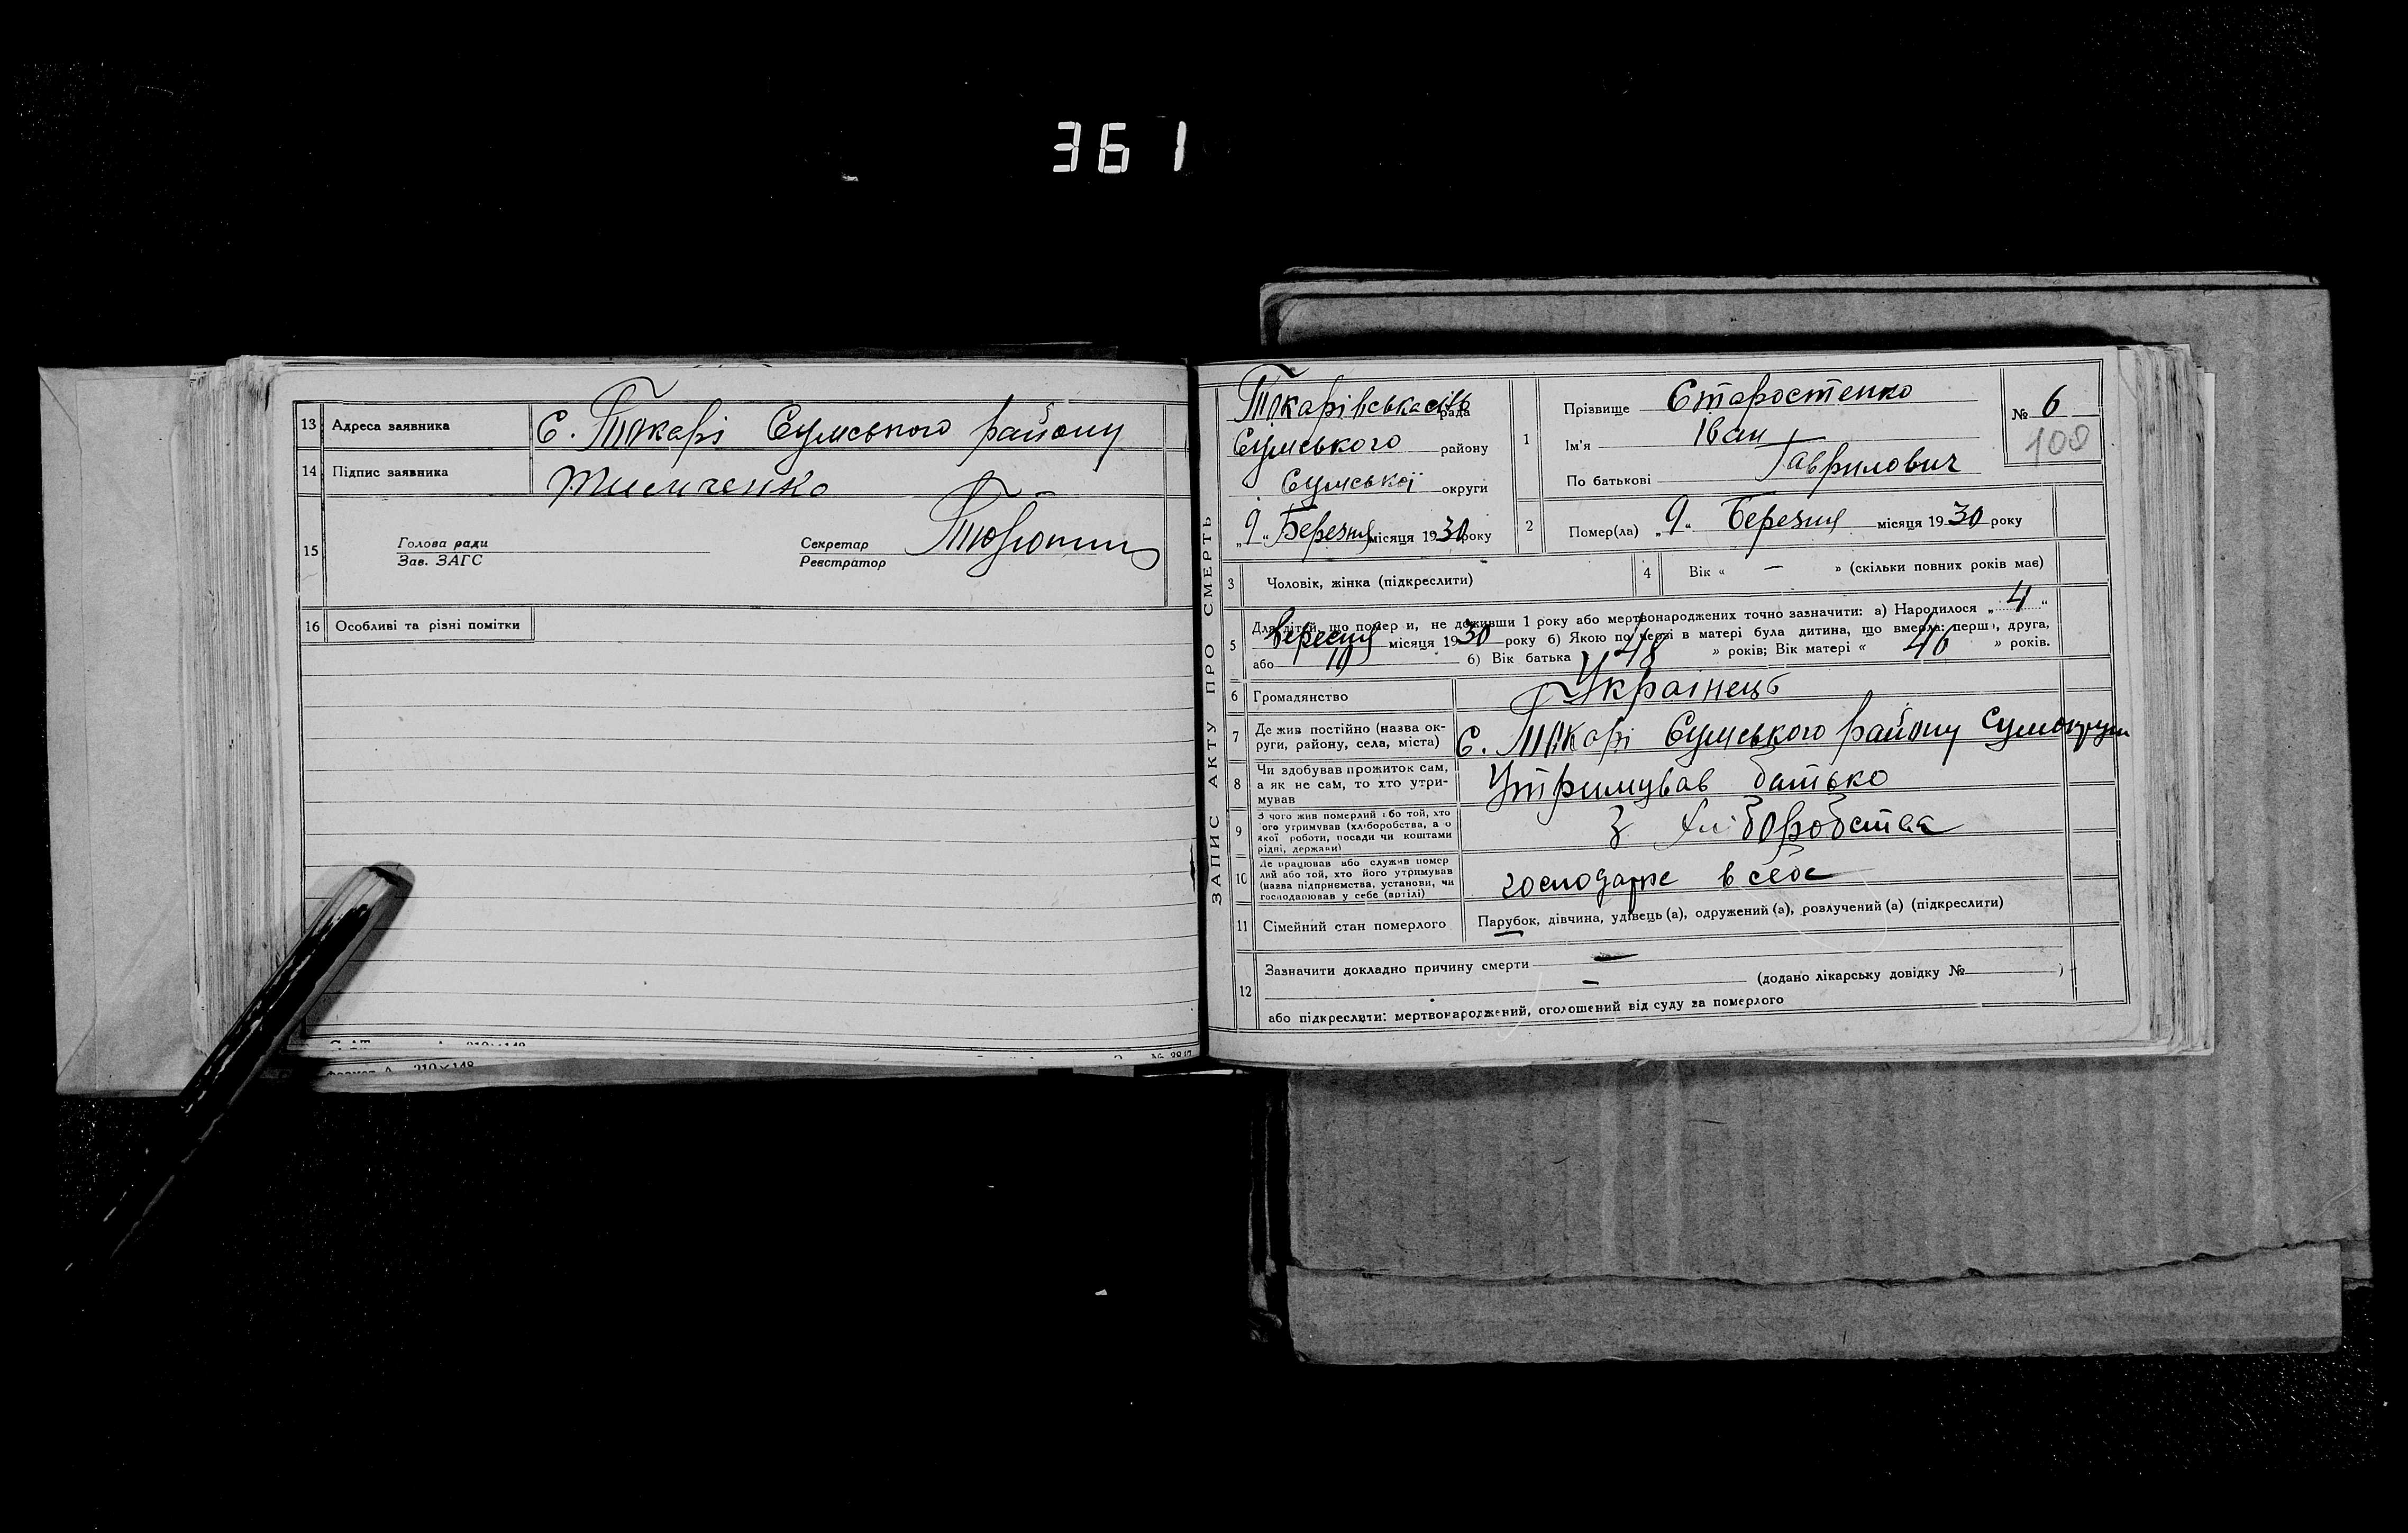 361
13 Адреса заявника С. Токарі Сумського району
14 Підпис заявника Тимченко
15 Голова ради
Зав. ЗАГС
Секретар
Реєстратор
16 Особливі та різні помітки
Формат А 210×148
ЗАПИС АКТУ ПРО СМЕРТЬ
Токарівська рада
Сумського району
Сумської округи
„9“ Березня місяця 1930 року
1 Прізвище Старостенко
Ім'я Іван
По батькові Гаврилович
№ 6
100
2 Помер(ла) „9“ Березня місяця 1930 року
3 Чоловік, жінка (підкреслити)
4 Вік « — » (скільки повних років має)
5 Для дітей, що померли, не доживши 1 року або мертвонароджених точно зазначити: а) Народилося „4“
Березня місяця 1930 року б) Якою по черзі в матері була дитина, що вмерла: перша, друга,
або 10 б) Вік батька 48 » років; Вік матері « 46 » років.
6 Громадянство Українець
7 Де жив постійно (назва ок-
руги, району, села, міста) С. Токарі Сумського району
8 Чи здобував прожиток сам,
а як не сам, то хто утри-
мував Утримував батько
9 З чого жив померлий або той, хто
його утримував (хліборобства, а о
якої роботи, посади чи коштами
рідні, держави) З хліборобства
10 Де працював або служив помер
лий або той, хто його утримував
(назва підприємства, установи, чи
господарював у себе (артілі) господарює в себе
11 Сімейний стан померлого Парубок, дівчина, удівець (а), одружений (а), розлучений (а) (підкреслити)
12 Зазначити докладно причину смерти —
— (додано лікарську довідку № )
або підкреслити: мертвонароджений, оголошений від суду за померлого